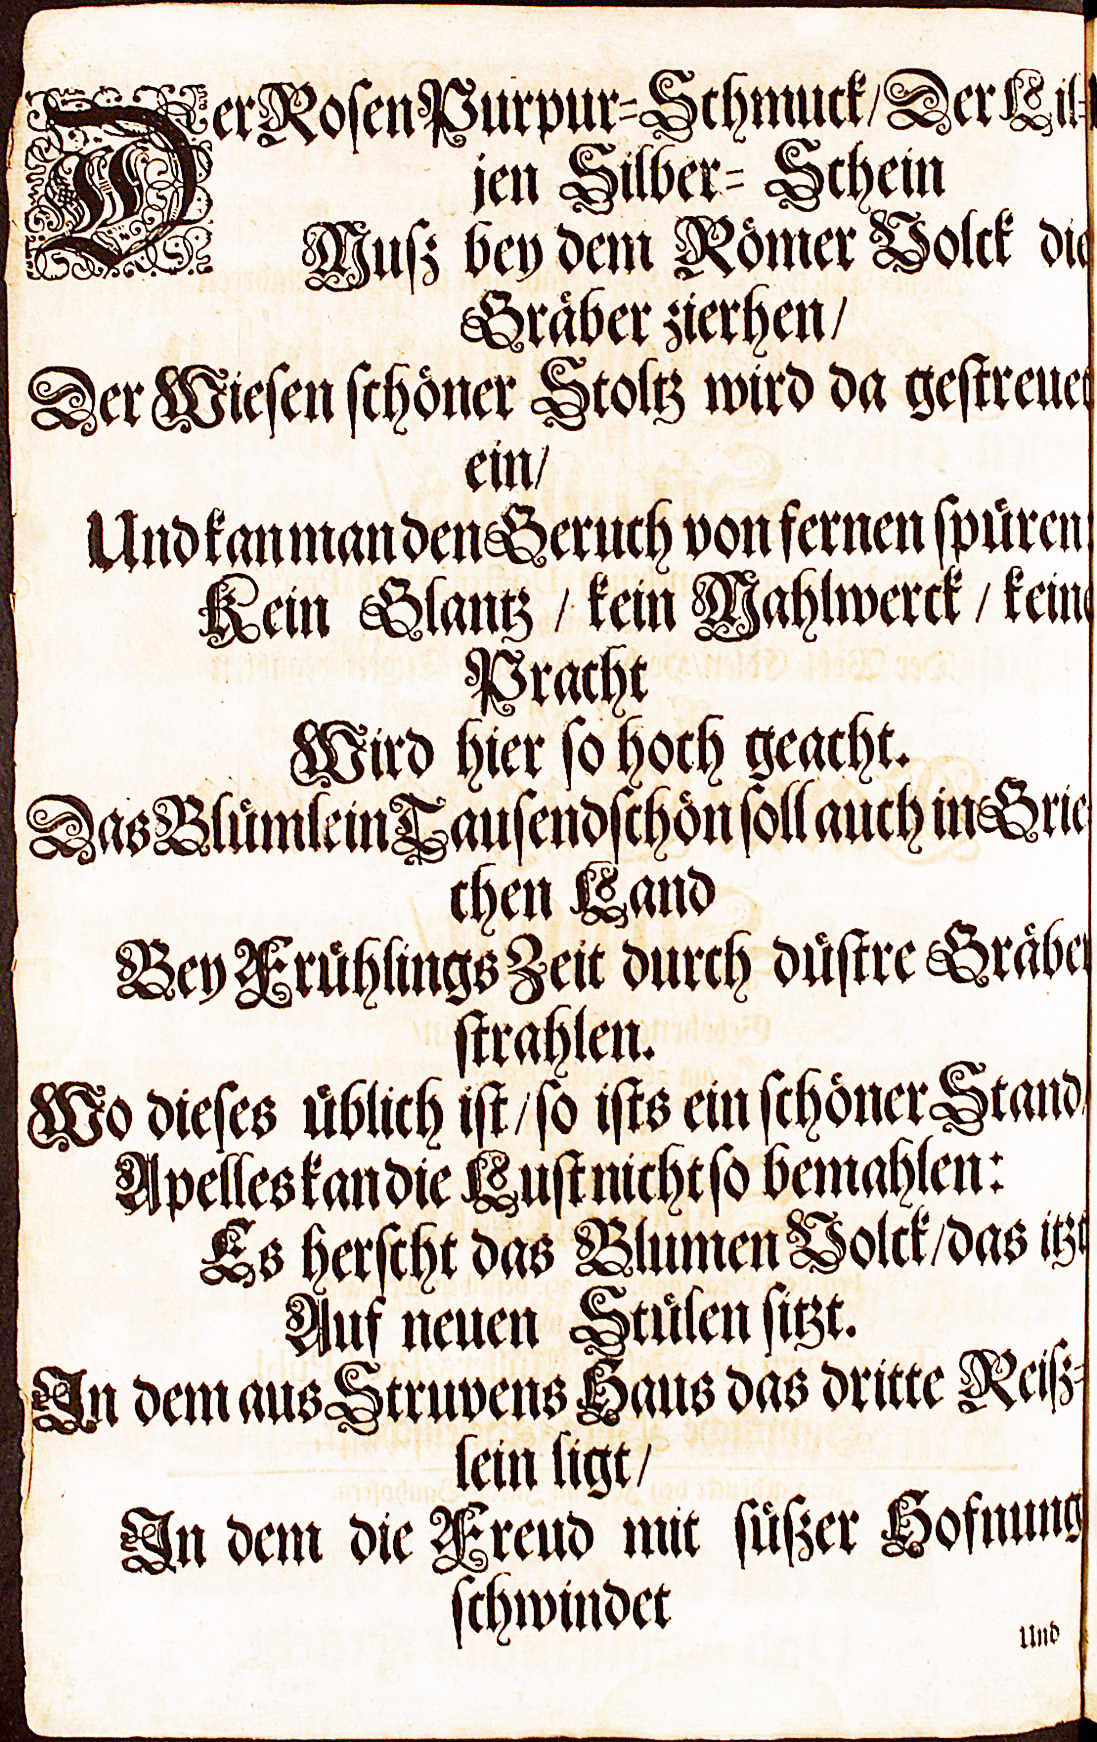 Der Rosen Purpur-Schmuck/ Der Lil-
jen Silber- Schein
Muß bey dem Römer Volck die
Gräber zierhen/
Der Wiesen schöner Stoltz wird da gestreuet
ein/
Und kan man den Geruch von fernen spüren;
Kein Glantz / kein Mahlwerck / keine
Pracht
Wird hier so hoch geacht.
Das Blümlein Tausendschön soll auch in Grie-
chen Land
Bey Frühlings Zeit durch düstre Gräber
strahlen.
Wo dieses üblich ist/ so ists ein schöner Stand/
Apelles kan die Lust nicht so bemahlen:
Es herscht das Blumen Volck/ das itzt
Auf neuen Stülen sitzt.
In dem aus Struvens Haus das dritte Reiß-
lein ligt/
In dem die Freud mit süßer Hofnung
schwindet
Und